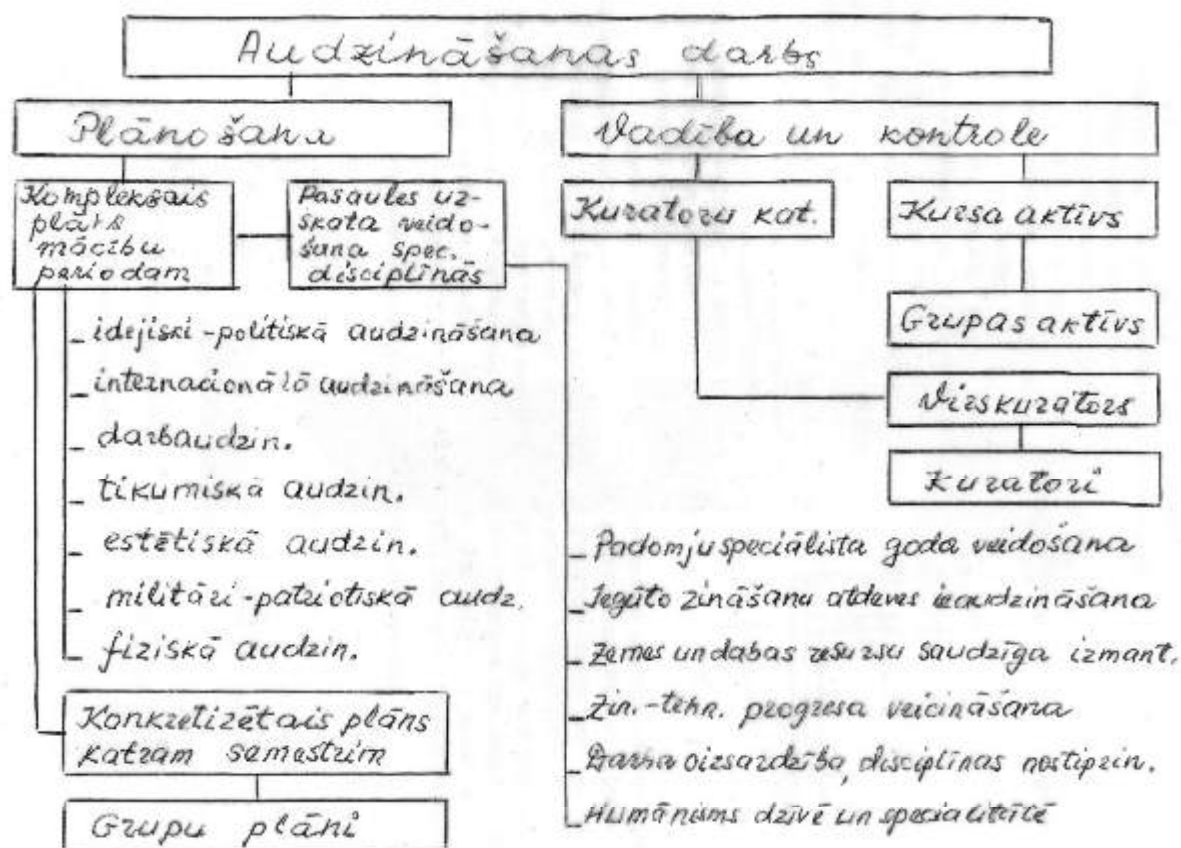 Audzināšanas darbs
Plānošana
Vadība un kontrole
Kompleksais
plāns
mācību
periodam
Pasaules uz-
skata veido-
šana spec.
disciplīnās
Kuratoru kat.
Kursa aktīvs
Grupas aktīvs
Virskurators
Kuratori
- idejiski-politiskā audzināšana
- internacionālā audzināšana
- darbaudzin.
- tikumiskā audzin.
- estētiskā audzin.
- militāri-patriotiskā audz.
- fiziskā audzin.
Konkretizētais plāns
katram semestrim
Grupu plāni
- Padomju speciālista goda veidošana
- Iegūto zināšanu atdeves ieaudzināšana
- Zemes un dabas resursu saudzīga izmant.
- Zin.-tehn. progresa veicināšana
- Darba aizsardzība, disciplīnas nostiprin.
- Humānisms dzīvē un specialitātē